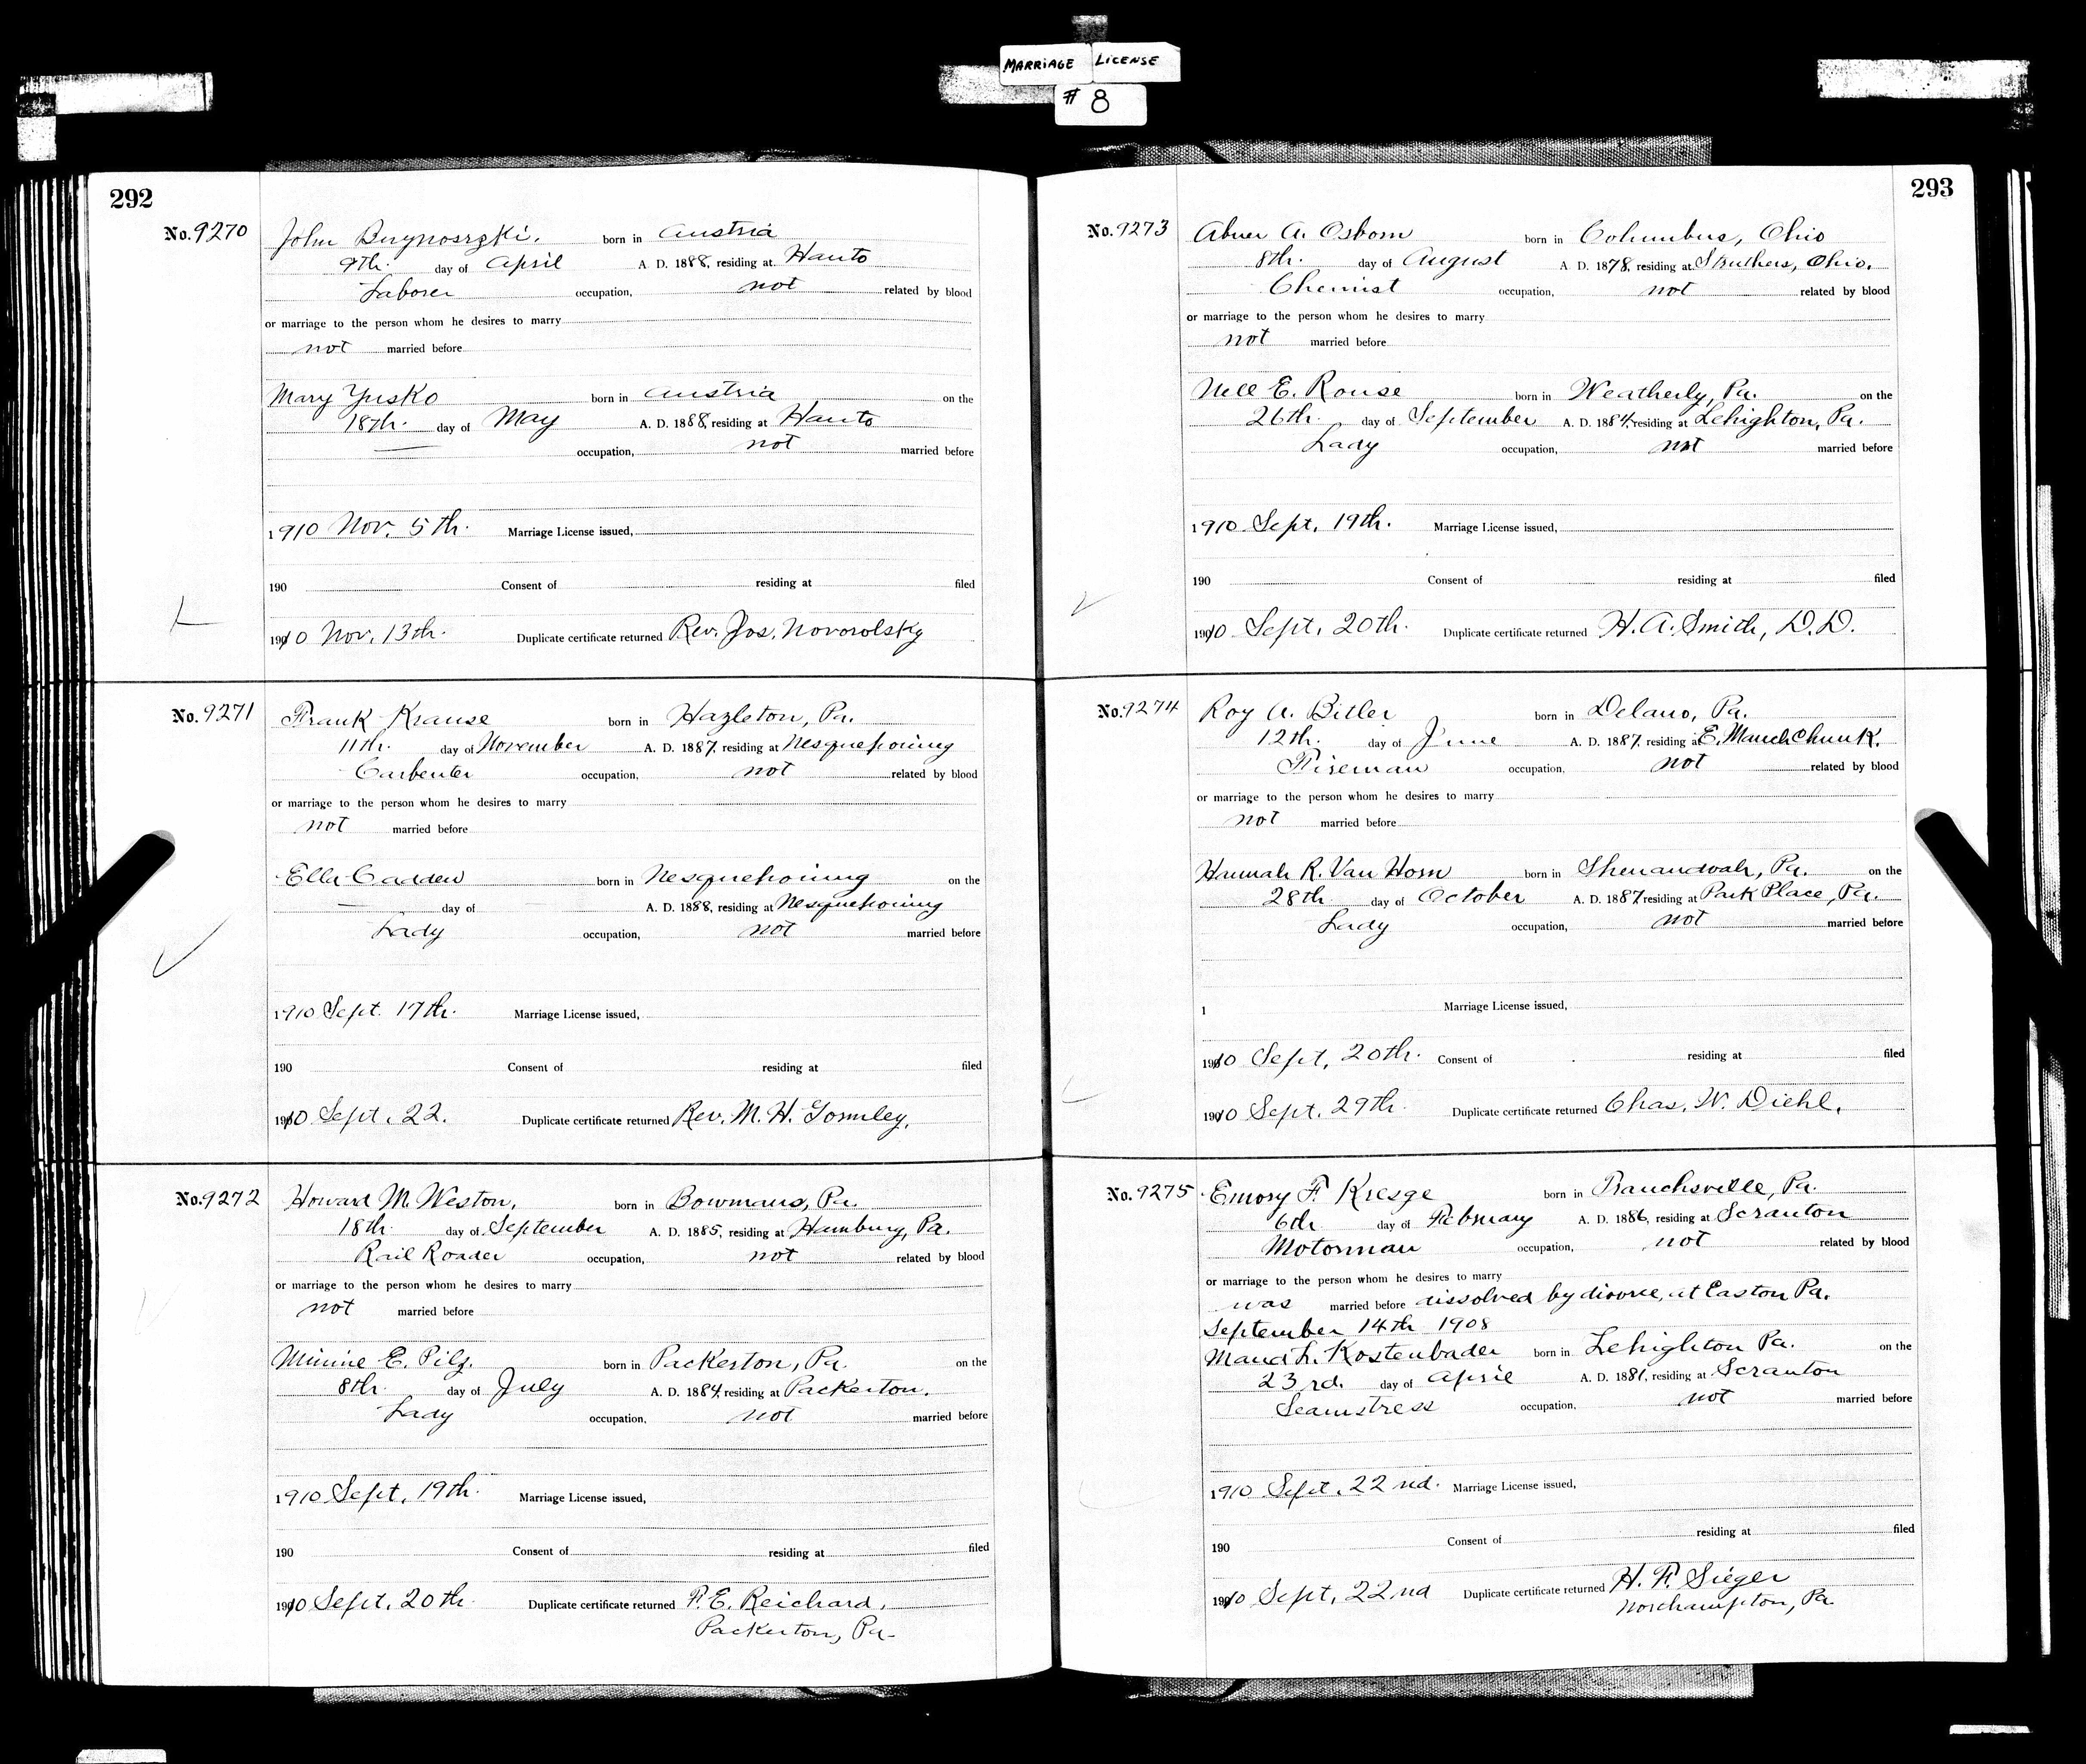 MARRIAGE LICENSE
# 8
292
No. 9270 John Buynoszki. born in Austria
9th. day of April A. D. 1888, residing at Hauto
Laborer occupation, not related by blood
or marriage to the person whom he desires to marry
not married before
Mary Yusko born in Austria on the
18th. day of May A. D. 1888, residing at Hauto
occupation, not married before
1910 Nov. 5th. Marriage License issued,
190 Consent of residing at filed
1910 Nov. 13th. Duplicate certificate returned Rev. Jos. Novorolsky
No. 9271 Frank Krause born in Hazleton, Pa.
11th. day of November A. D. 1887, residing at Nesquehoning
Carpenter occupation, not related by blood
or marriage to the person whom he desires to marry
not married before
Ella Cadden born in Nesquehoning on the
day of A. D. 1888, residing at Nesquehoning
Lady occupation, not married before
1910 Sept. 17th. Marriage License issued,
190 Consent of residing at filed
1910 Sept. 22. Duplicate certificate returned Rev. M. H. Gormley.
No. 9272 Howard M. Weston, born in Bowmans, Pa.
18th. day of September A. D. 1885, residing at Hamburg, Pa.
Rail Roader occupation, not related by blood
or marriage to the person whom he desires to marry
not married before
Minnie E. Pilz. born in Packerton, Pa. on the
8th. day of July A. D. 1884, residing at Packerton.
Lady occupation, not married before
1910 Sept. 19th. Marriage License issued,
190 Consent of residing at filed
1910 Sept. 20th. Duplicate certificate returned P. E. Reichard,
Packerton, Pa.
293
No. 9273 Abner A. Osborn born in Columbus, Ohio
8th. day of August A. D. 1878, residing at Struthers, Ohio.
Chemist occupation, not related by blood
or marriage to the person whom he desires to marry
not married before
Nell E. Rouse born in Weatherly, Pa. on the
26th. day of September A. D. 1884, residing at Lehighton, Pa.
Lady occupation, not married before
1910 Sept. 19th. Marriage License issued,
190 Consent of residing at filed
1910 Sept. 20th. Duplicate certificate returned H. A. Smith, D.D.
No. 9274 Roy A. Bitler born in Delano, Pa.
12th. day of June A. D. 1887, residing at E. Mauch Chunk.
Fireman occupation, not related by blood
or marriage to the person whom he desires to marry
not married before
Hannah R. Van Horn born in Shenandoah, Pa. on the
28th day of October A. D. 1887 residing at Park Place, Pa.
Lady occupation, not married before
1 Marriage License issued,
1910 Sept. 20th. Consent of residing at filed
1910 Sept. 29th. Duplicate certificate returned Chas. W. Diehl.
No. 9275 Emory F. Kresge born in Rauchsville, Pa.
6th day of February A. D. 1886, residing at Scranton
Motorman occupation, not related by blood
or marriage to the person whom he desires to marry
was married before dissolved by divorce, at Easton Pa.
September 14th 1908
Maud L. Kostenbader born in Lehighton Pa. on the
23rd. day of April A. D. 1881, residing at Scranton
Seamstress occupation, not married before
1910 Sept. 22nd. Marriage License issued,
190 Consent of residing at filed
1910 Sept. 22nd Duplicate certificate returned H. F. Sieger
Northampton, Pa.